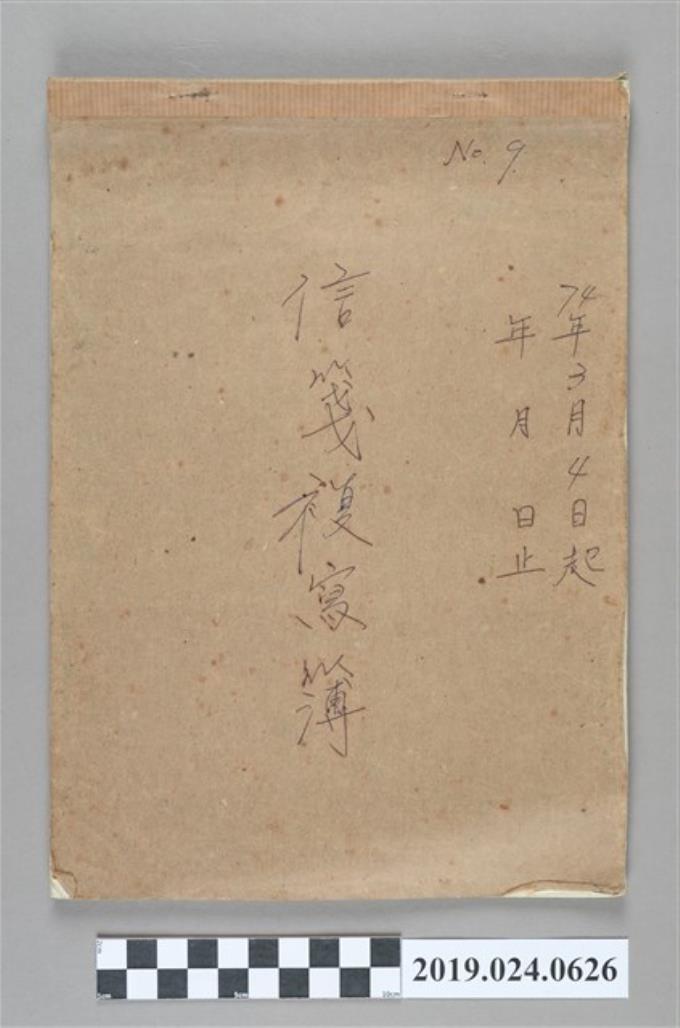 No. 9
74年3月4日起
年 月 日止
信箋複寫簿
2cm
0cm 5cm 10cm
2019.024.0626